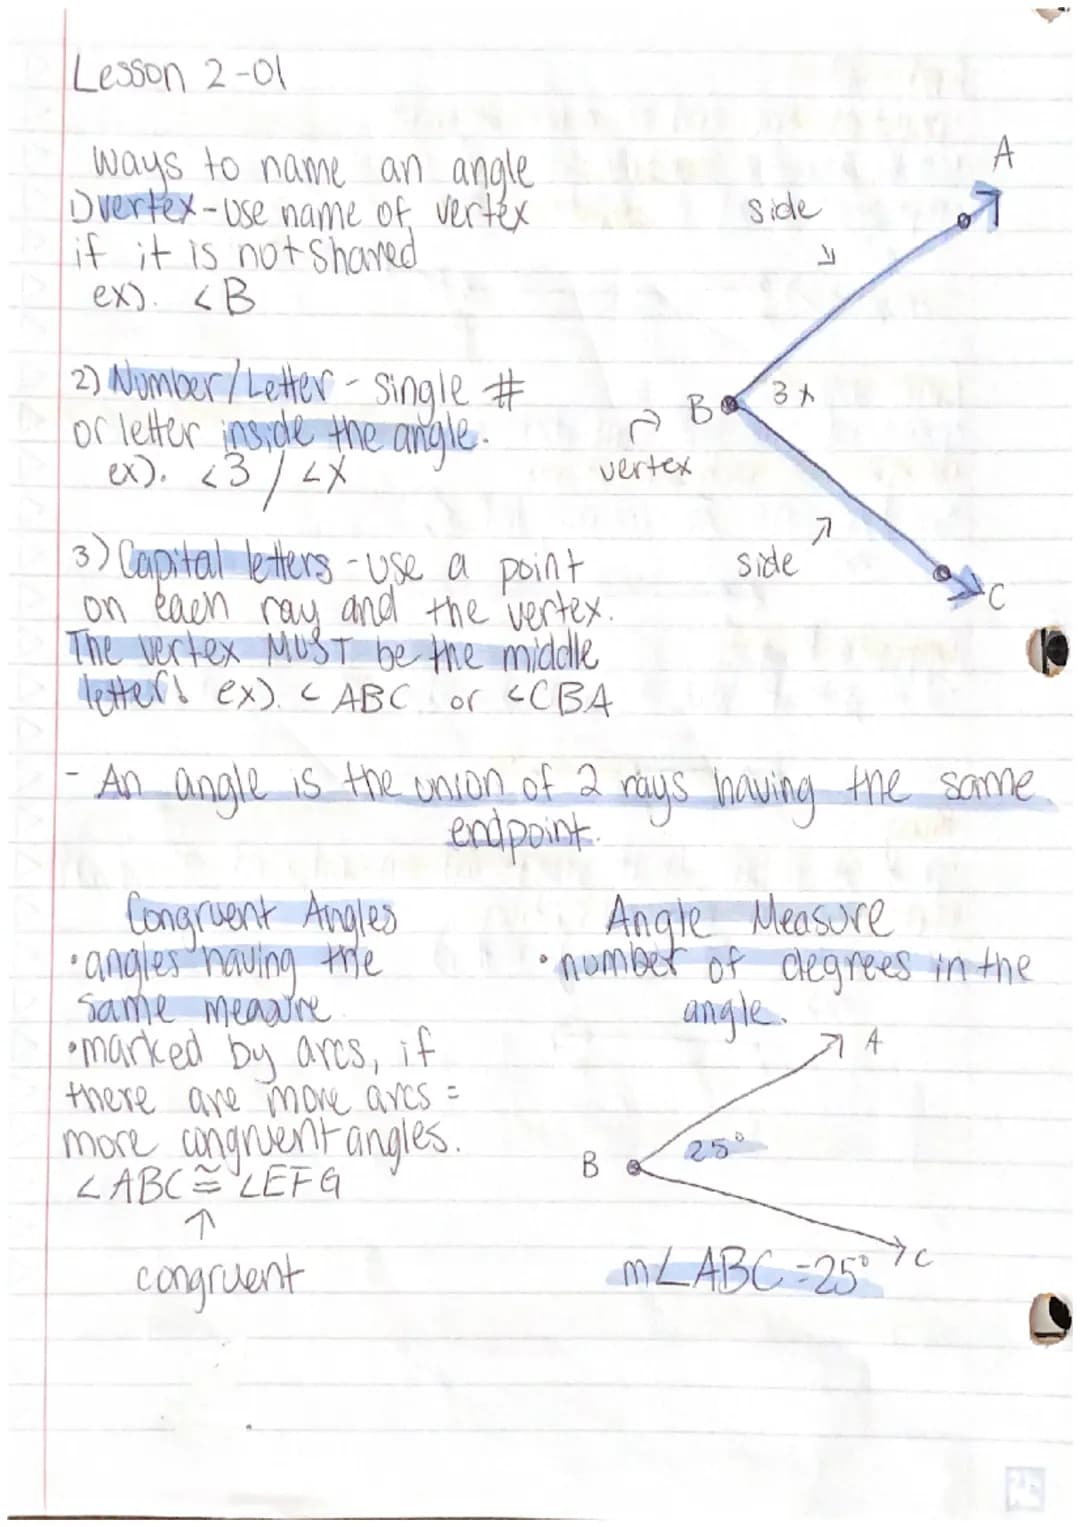 Lesson 2-01
Ways to name an angle
1) vertex - use name of vertex
if it is not shared
ex). <B
2) Number/Letter - single #
or letter inside the angle.
ex). <3 / ∠X
3) Capital letters - use a point
on each ray and the vertex.
The vertex MUST be the middle
letter! ex). < ABC or <CBA
A
side
B
3 x
vertex
side
C
- An angle is the union of 2 rays having the same
endpoint.
Congruent Angles
• angles having the
same measure
• marked by arcs, if
there are more arcs =
more congruent angles.
∠ABC ≅ ∠EFG
↑
congruent
Angle Measure
• number of degrees in the
angle.
A
25°
B
C
m∠ABC = 25°